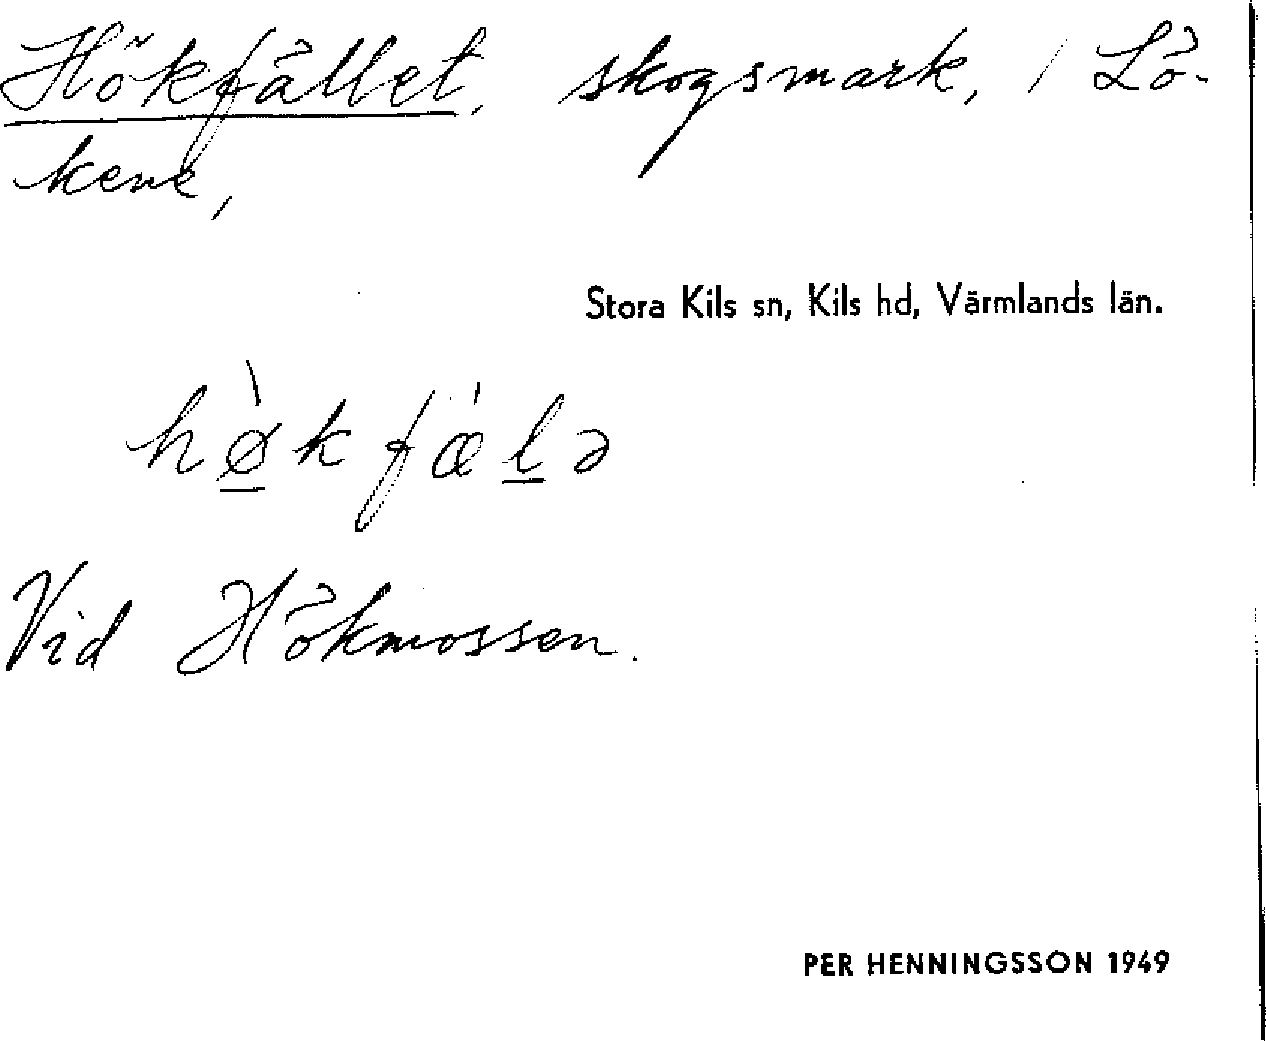 Hökfället, skogsmark, / Lö-
kene,
Stora Kils sn, Kils hd, Värmlands län.
hø̠̀kfǽl̠ə
Vid Hökmossen.
PER HENNINGSSON 1949